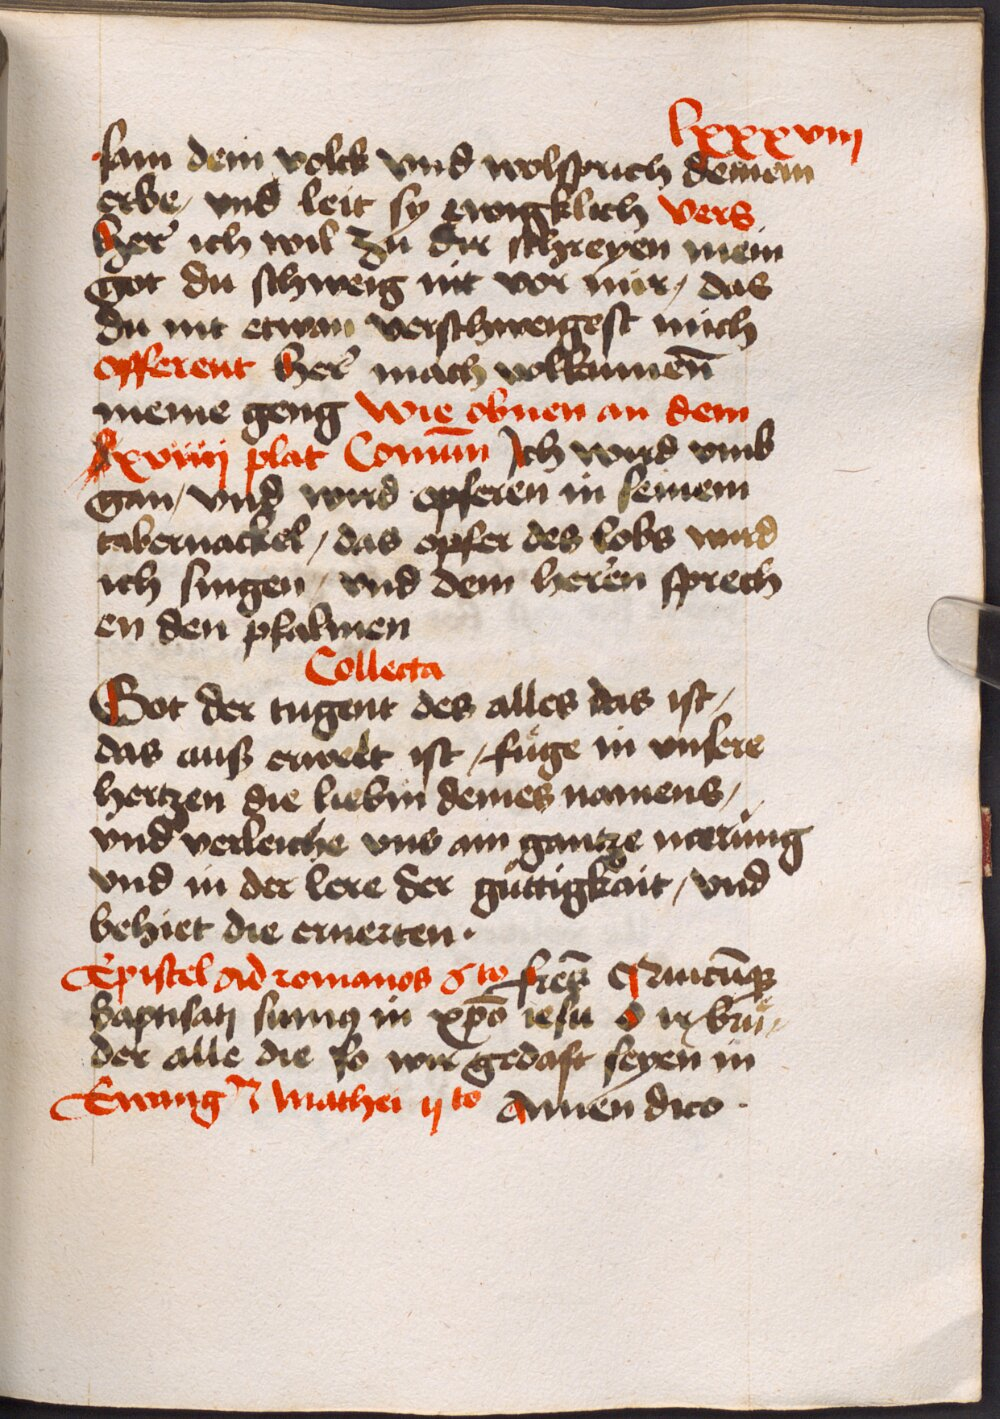 lxxxviij
sam dein volck vnd wolsprich deinem
erbe, vnd leit sy ewigklich vers
Her ich wil zu dir schreyen mein
got du schweig nit vor mir, das
du nit etwan verschweigest mich
offerent Her mach volkumen̅
meine geng wie obnen an dem
lxviiij plat Comūn Ich wird vmb
gan, vnd wird opferen in seinem
tabernackel, das opfer des lobs wird
ich singen, vnd dem heren sprech
en den psalmen
Collecta
Got der tugent des alles das ist,
das auß erwelt ist, fuge in vnsere
hertzen die liebin deines namens,
vnd verleiche vns ain gantze merūng
vnd in der lere der guttigkait, vnd
behiet die ernerten.
Epistel ad romanos 6to fres Quicūqꝫ
baptisati sumꝰ in xp̄o iesu O ir brů,
der alle die so wir gedaft seyen in
Ewang Mathei to Amen dico.